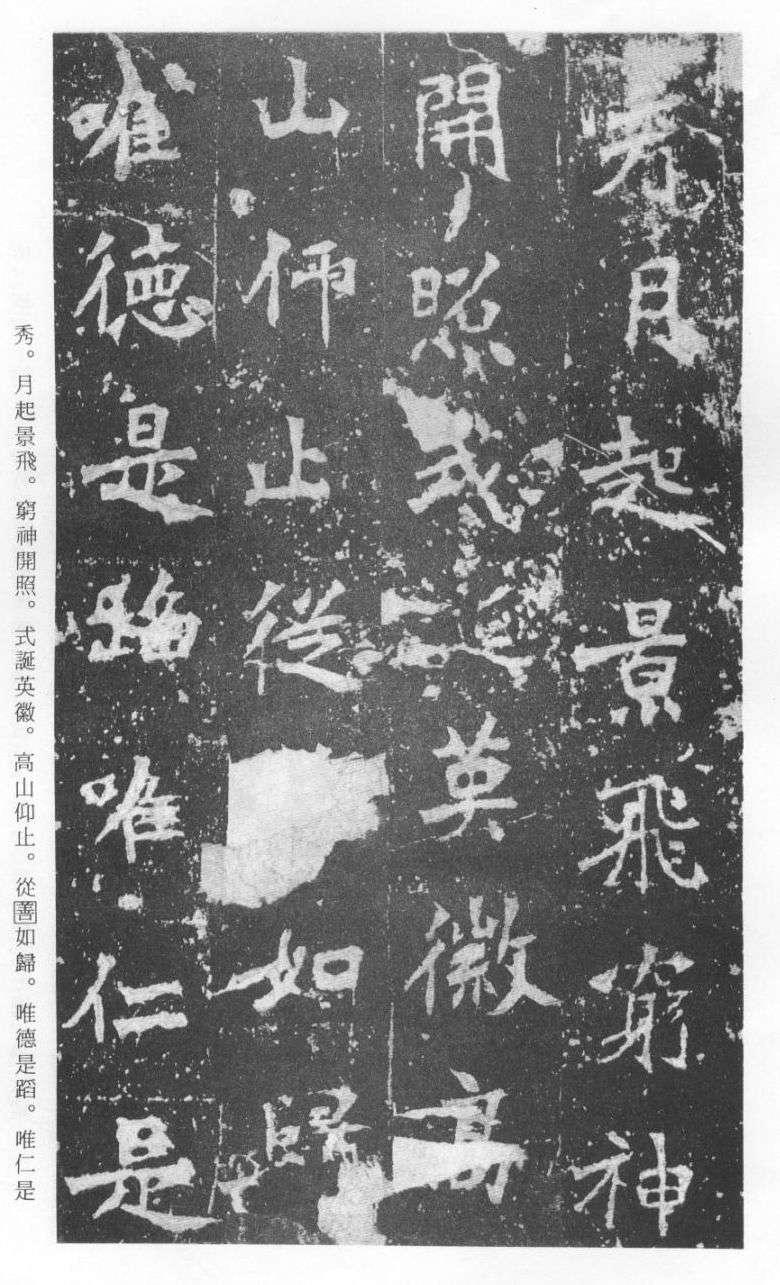 秀月起景飛窮神
開照式誕英徽高
山仰止從如歸
唯德是蹈唯仁是
秀。月起景飛。窮神開照。式誕英徽。高山仰止。從善如歸。唯德是蹈。唯仁是